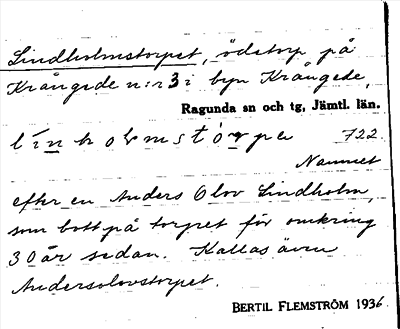 Lindholmstorpet, ödetorp på
Krångede n:r 3 i byn Krångede,
Ragunda sn och tg, Jämtl. län.
722.
Namnet
efter en Anders Olov Lindholm,
som bott på torpet för omkring
30 år sedan. Kallas även
Andersolovstorpet.
BERTIL FLEMSTRÖM 1936.